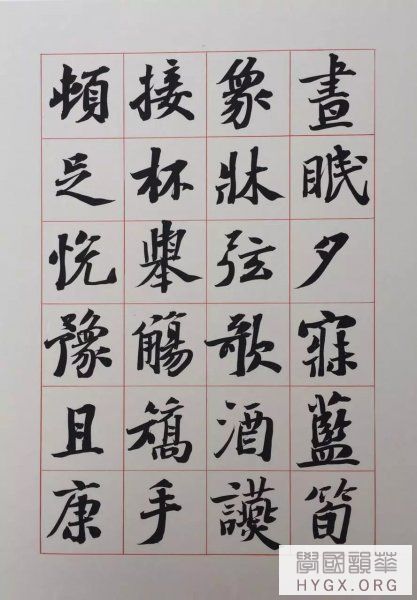 晝眠夕寐藍筍
象牀弦歌酒讌
接杯舉觴矯手
頓足悅豫且康
學國韻華
HYGX.ORG